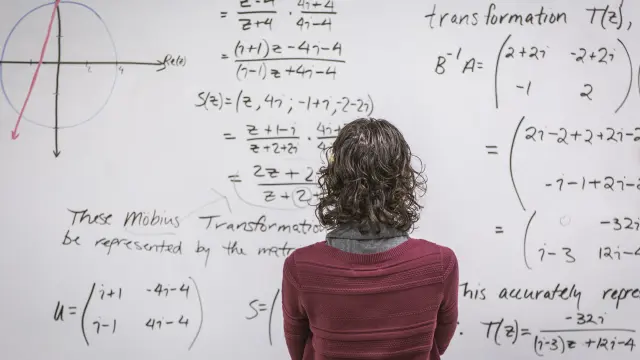 Re(z)
z-4 / z+4 · 4i+4 / 4i-4
= (i+1)z-4i-4 / (i-1)z+4i-4
S(z)=(z, 4i; -1+i, -2-2i)
= z+1-i / z+2+2i · 4i
= 2z+2 / z+(2)
These Möbius Transformation
be represented by the
u = (i+1 -4i-4
i-1 4i-4)
S = (
transformation T(z),
B⁻¹A = (2+2i -2+2i
-1 2)
= (2i-2+2+2i-2
-i-1+2i-2
= ( -32i
i-3 12i-4
This accurately
: T(z) = -32i / (i-3)z+12i-4